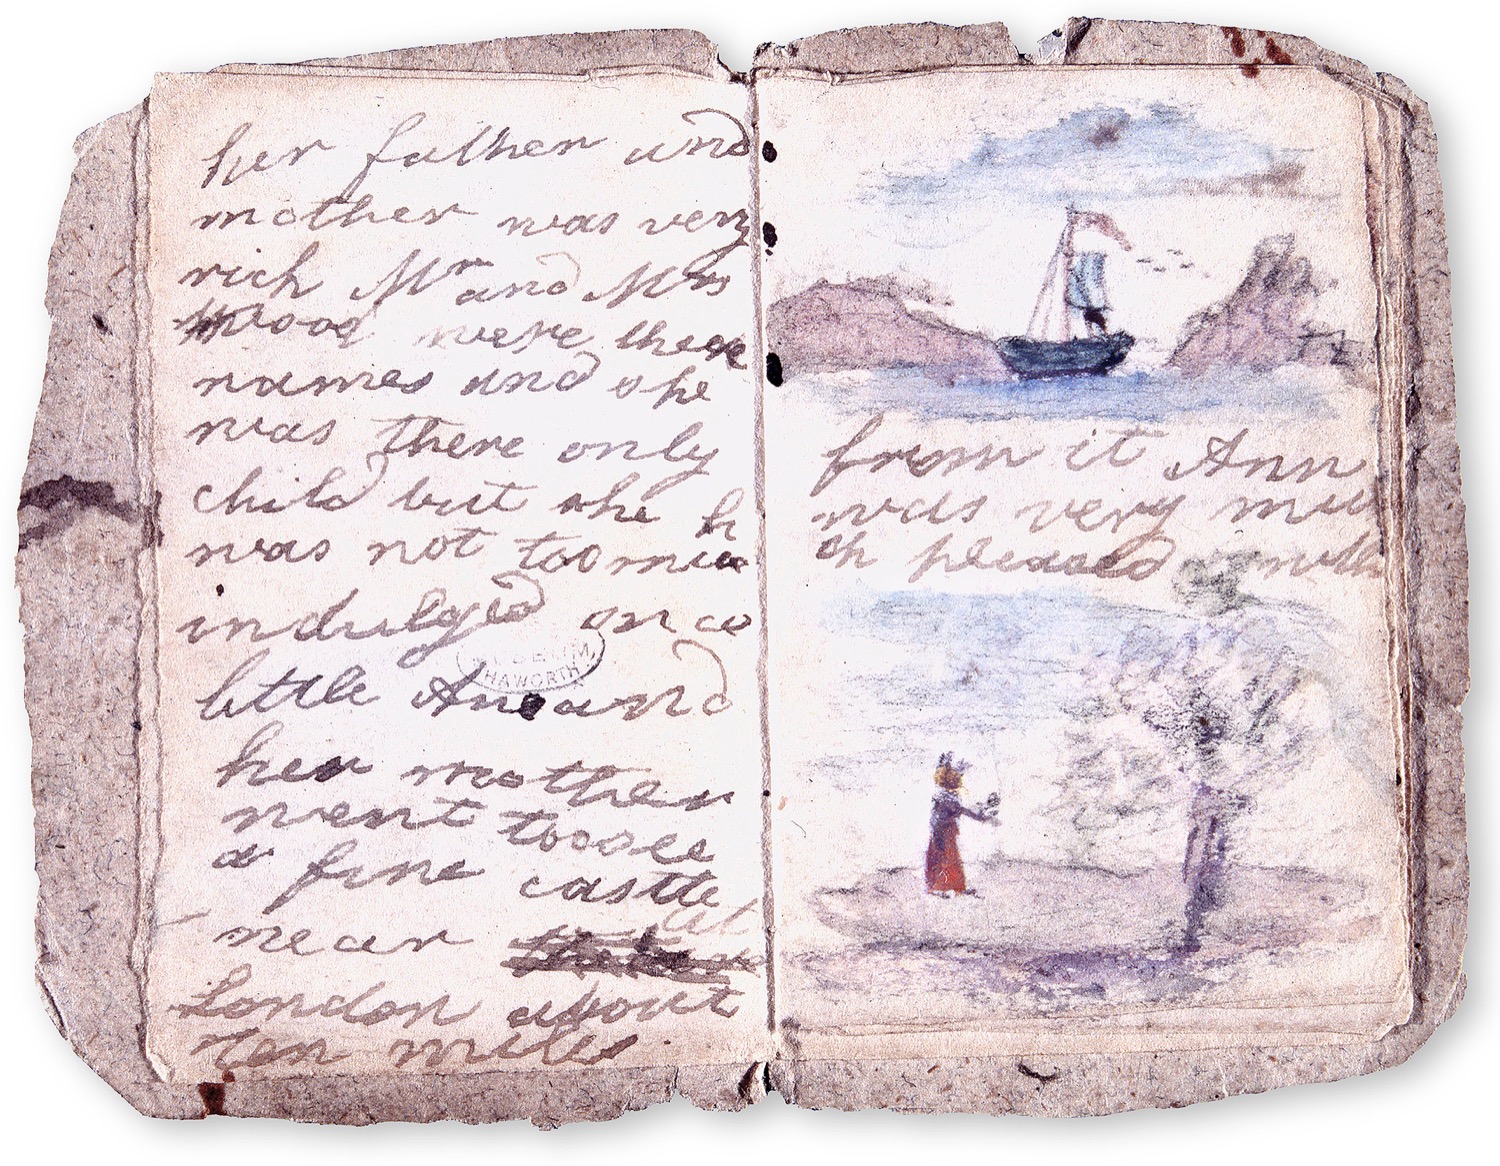 her father and
mother was very
rich Mr and Mrs
Wood were there
names and she
was there only
child but she
was not too muc
indulged once
little Ane and
her mother
went too see
a fine castle
near
London about
ten miles
MUSEUM
HAWORTH
from it Ann
was very mu
ch pleased with